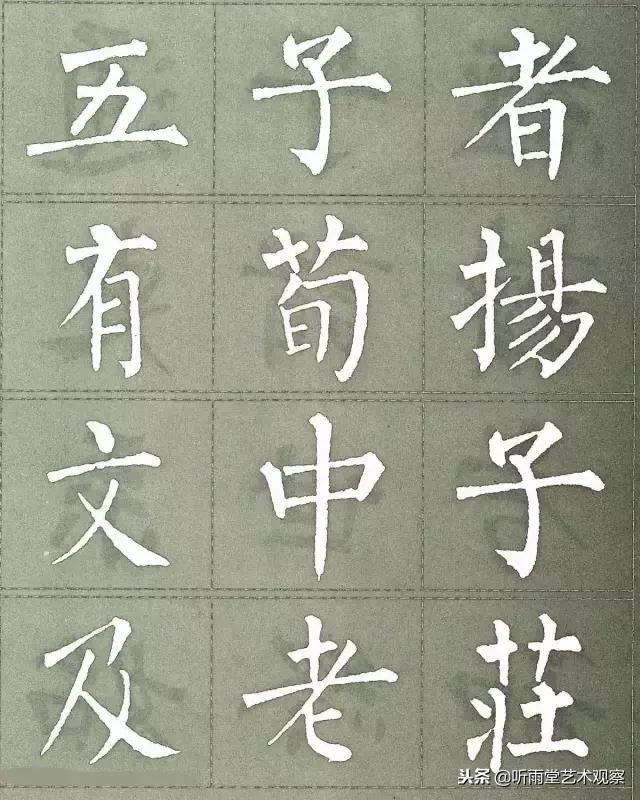 五子者
有荀揚
文中子
及老莊
头条 @听雨堂艺术观察